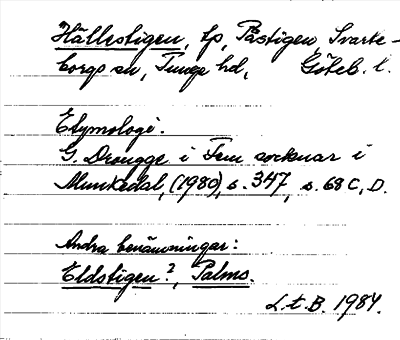 Hällestigen, tp, Påstigen, Svarte-
borgs sn, Tunge hd, Göteb. l.
Etymologi.
G. Drougge i Fem socknar i
Munkedal, (1980), s. 347, s. 68 C, D.
Andra benämningar:
Eldstigen?, Palms.
L.t.B. 1984.